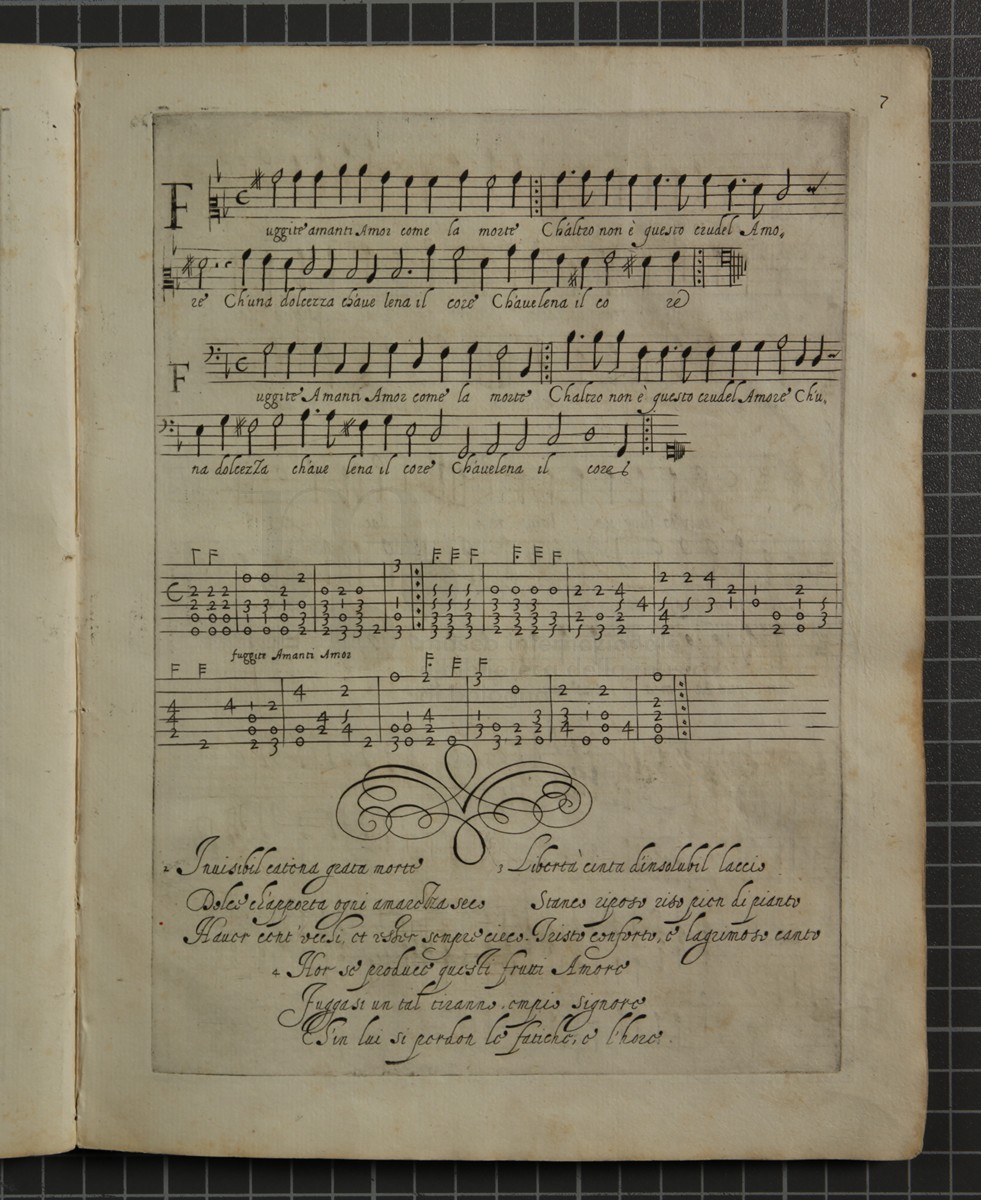 7
Fuggite amanti Amor come la morte Ch'altro non è questo crudel Amo,
re Ch'una dolcezza ch'aue lena il core Ch'auelena il co re
Fuggite Amanti Amor come la morte Ch'altro non è questo crudel Amore Ch'u,
na dolcezza ch'aue lena il core Ch'auelena il core
fuggite Amanti Amor
2 Inuisibil catena grata morte
Dolce ch'apporta ogni amarezza seco
Hauer cent'occhi, et esser sempre cieco.
3 Libertà cinta d'insolubil laccio
Stanco riposo riso pien di pianto
Tristo conforto, e lagrimoso canto
4 Hor se produce questi frutti Amore
Fuggasi un tal tiranno, empio signore
Ch'in lui si perdon le fatiche, e l'hore.